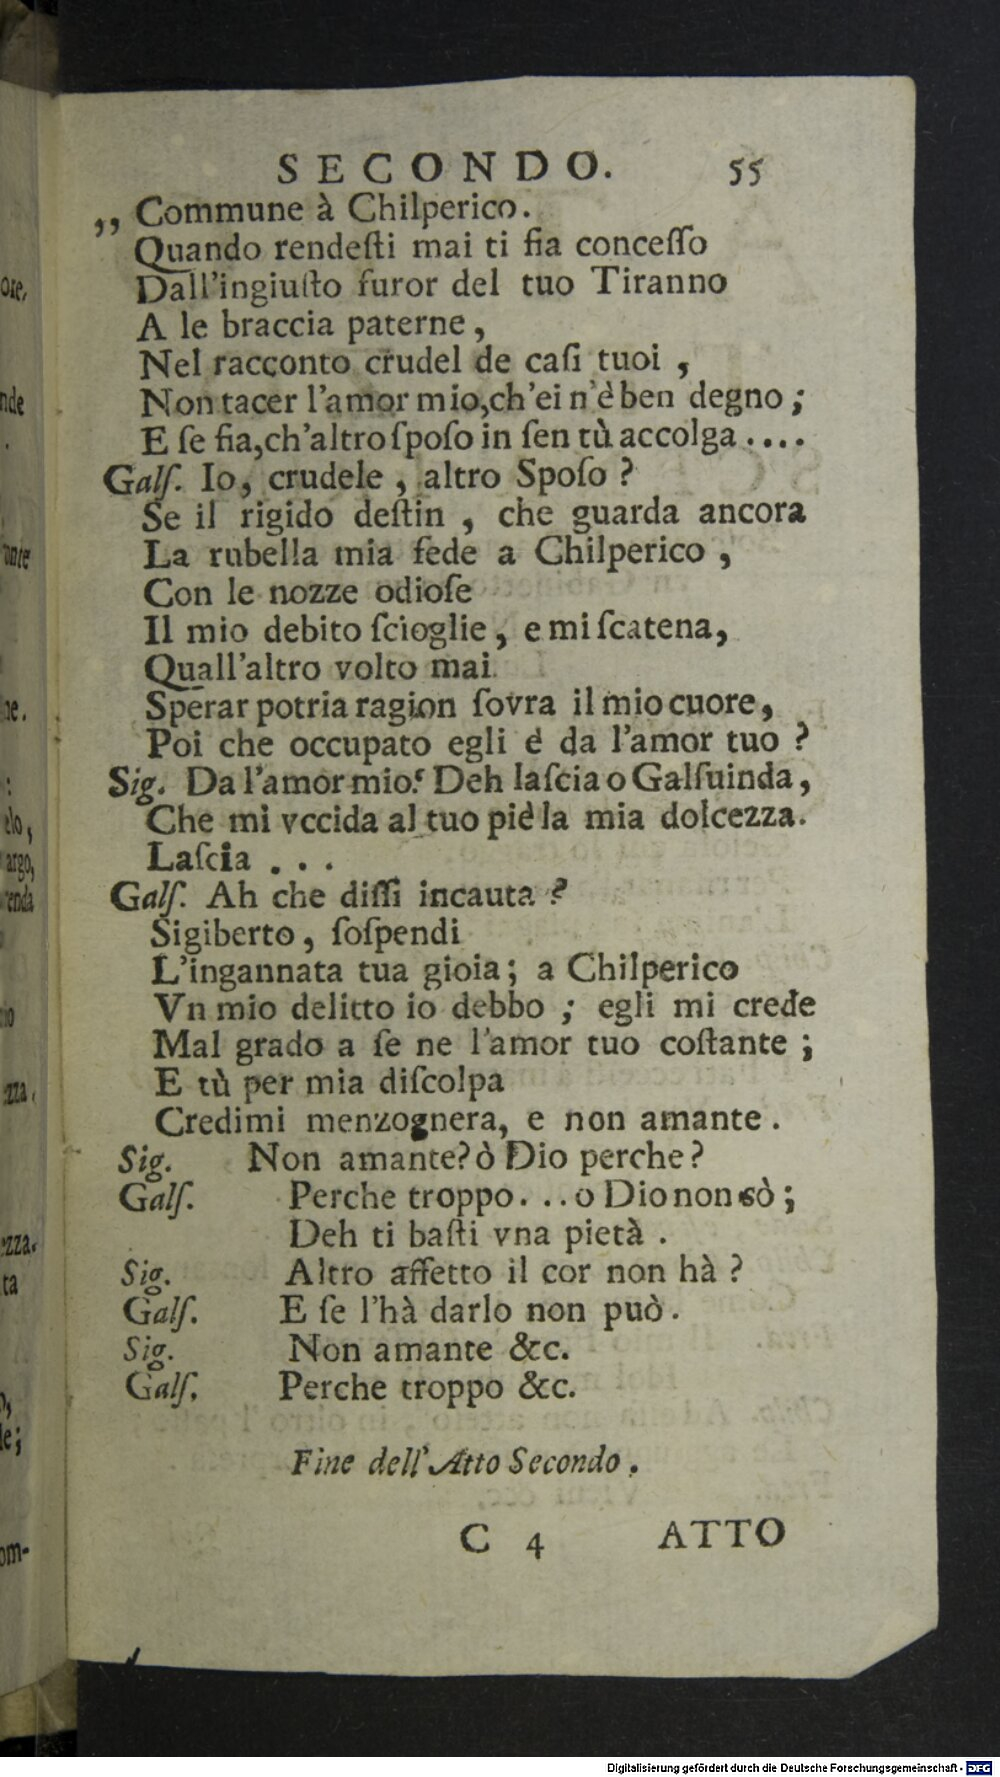 SECONDO. 55
,, Commune à Chilperico.
Quando rendeſti mai ti fia conceſſo
Dall'ingiuſto furor del tuo Tiranno
A le braccia paterne,
Nel racconto crudel de caſi tuoi,
Non tacer l'amor mio, ch'ei n'è ben degno;
E ſe fia, ch'altro ſpoſo in ſen tù accolga....
Galſ. Io, crudele, altro Spoſo?
Se il rigido deſtin, che guarda ancora
La rubella mia fede a Chilperico,
Con le nozze odioſe
Il mio debito ſcioglie, e mi ſcatena,
Quall'altro volto mai
Sperar potria ragion ſovra il mio cuore,
Poi che occupato egli è da l'amor tuo?
Sig. Da l'amor mio? Deh laſcia o Galſuinda,
Che mi vccida al tuo piè la mia dolcezza.
Laſcia...
Galſ. Ah che diſſi incauta?
Sigiberto, ſoſpendi
L'ingannata tua gioia; a Chilperico
Vn mio delitto io debbo; egli mi crede
Mal grado a ſe ne l'amor tuo coſtante;
E tù per mia diſcolpa
Credimi menzognera, e non amante.
Sig. Non amante? ò Dio perche?
Galſ. Perche troppo... o Dio non sò;
Deh ti baſti vna pietà.
Sig. Altro affetto il cor non hà?
Galſ. E ſe l'hà darlo non può.
Sig. Non amante &c.
Galſ. Perche troppo &c.
Fine dell'Atto Secondo.
C 4 ATTO
ore,
nde
.
ne.
:
elo,
argo,
enda
zza.
ezza.
ta
le;
om-
Digitalisierung gefördert durch die Deutsche Forschungsgemeinschaft - DFG